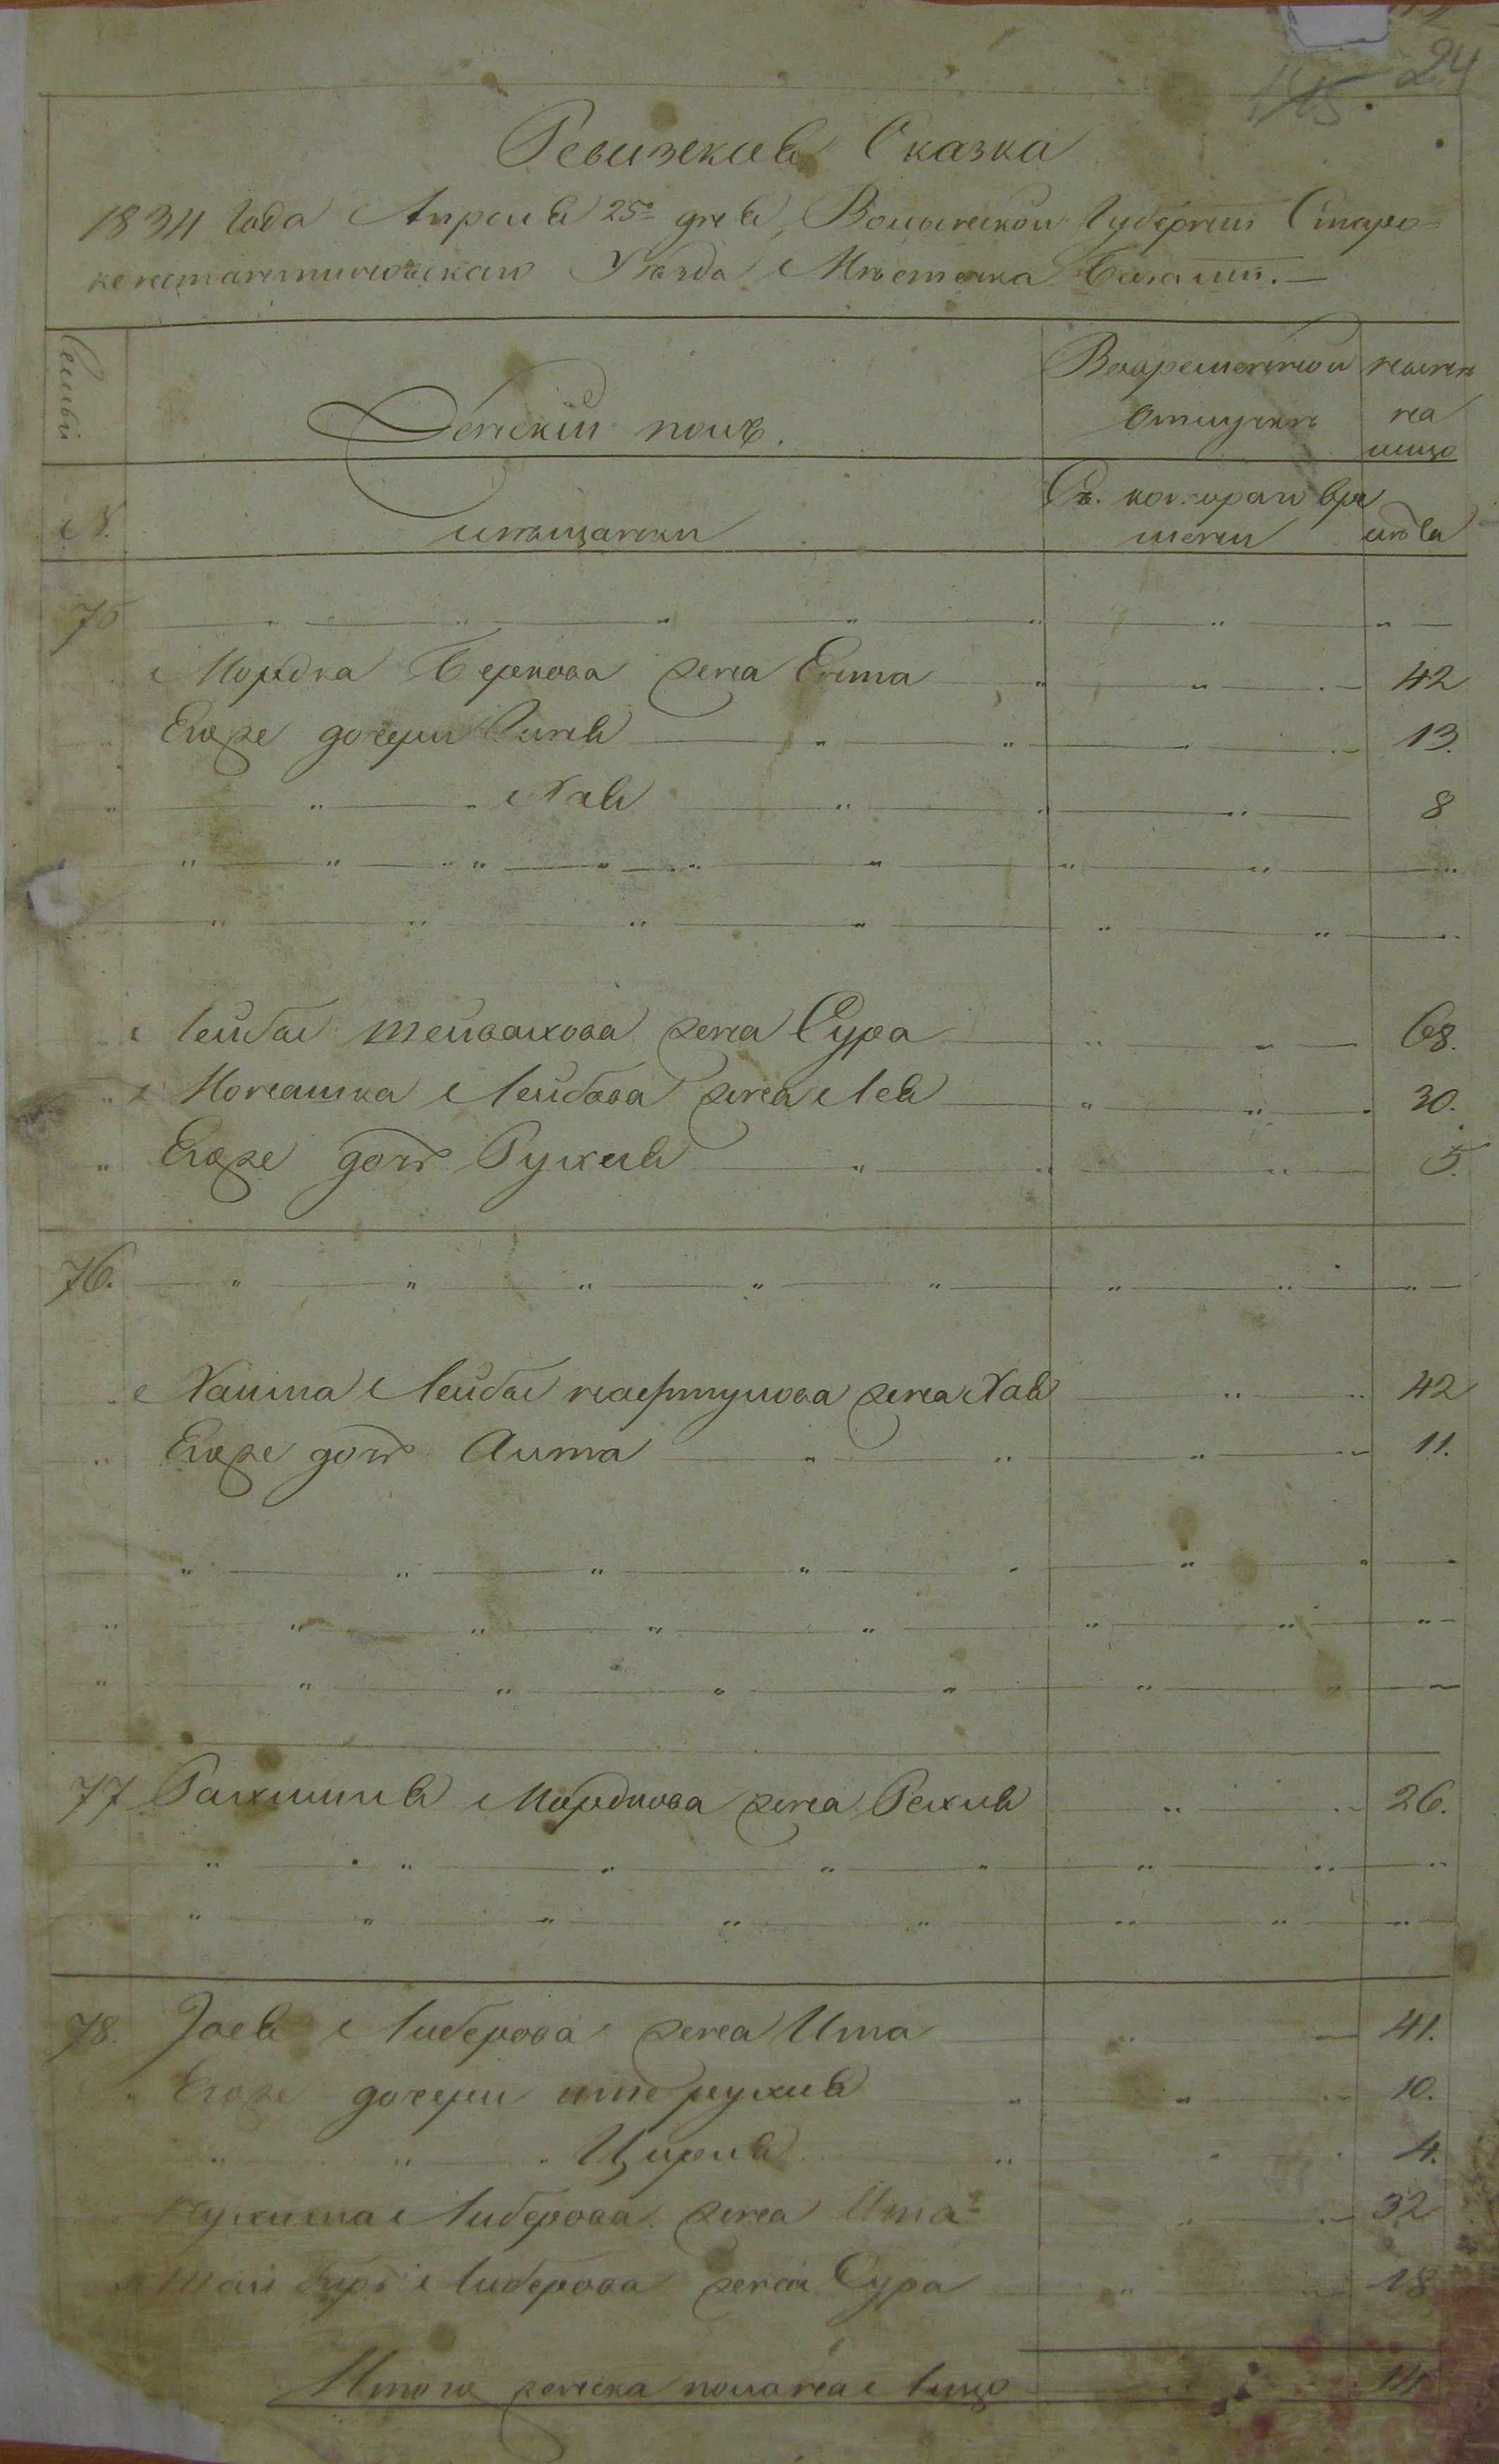 24
145.
Ревизская Сказка
1834 Года Апреля 25го дня, Волынской Губернии Старо=
константиновскаго Уѣзда Мѣстечка Базалии. —
Семьи
Женскій полъ.
Вовременной
отлучкѣ
нынѣ
на
лицо
N.
мѣщанки
Съ котораго вре
мени
лѣта
75
Мордка Беркова жена Ента 42
Егоже дочери 13.
Хая 8
Лейбы жена Сура 68.
Мошка Лейбова жена Лея 30.
Егоже дочь Рухля 5.
76.
Хаима Лейбы жена Хая 42
Егоже дочь Аита 11.
77 Рахмиля Мордкова жена Рехля 26.
78. Либерова жена Ита 41.
Егоже дочери 10.
Цирля 4.
Нухима Либерова жена Ита 2я 32
Либерова жена Сура 18
Итого женска пола на Лицо 14